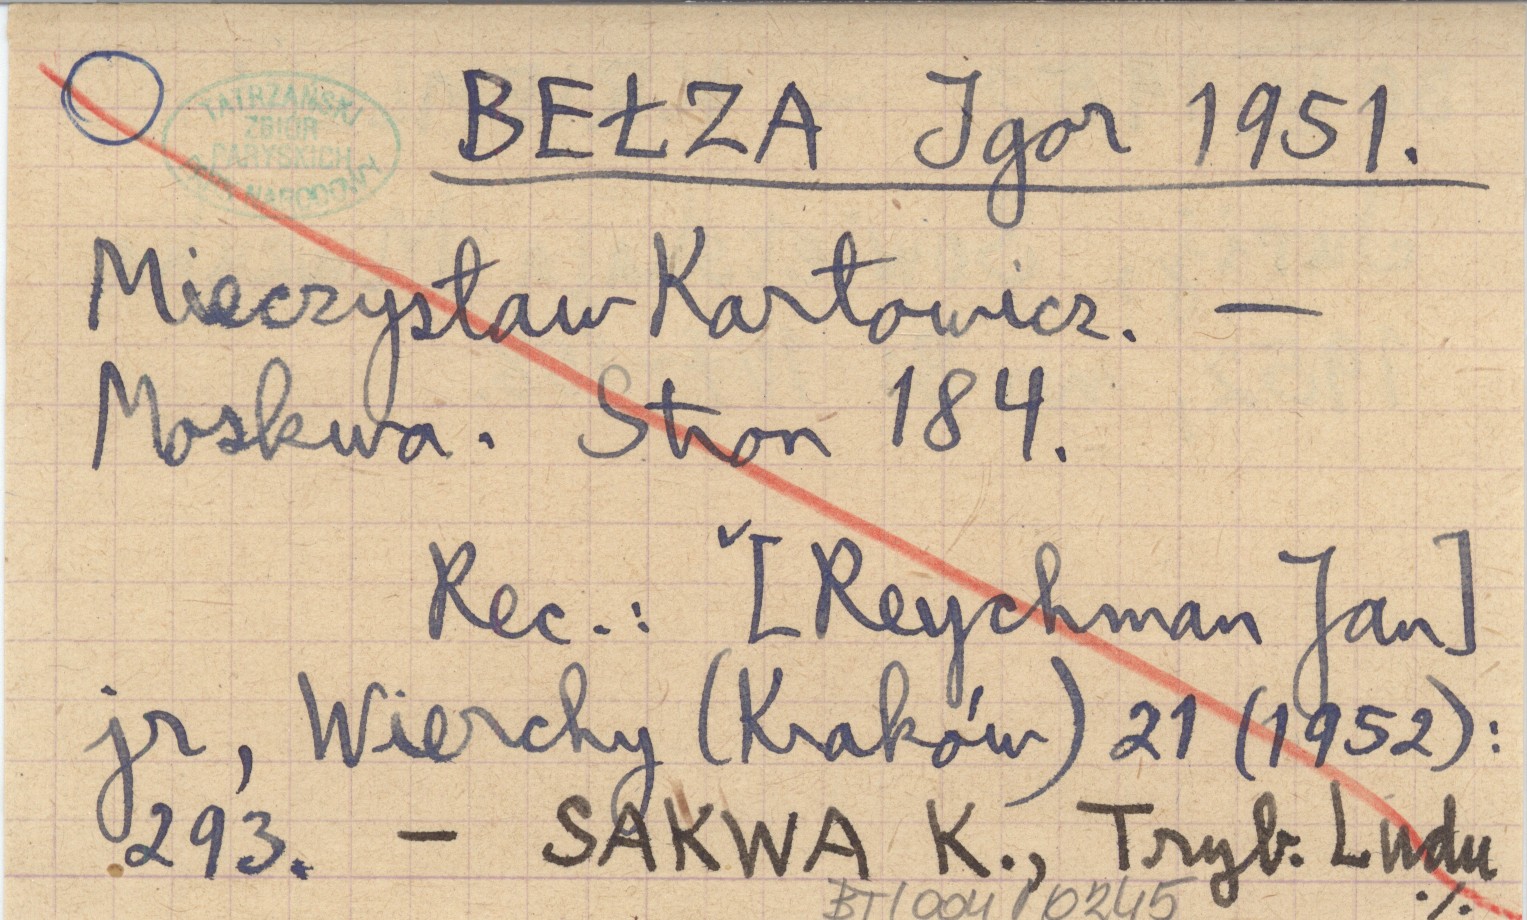 TATRZAŃSKI
ZBIÓR
PARYSKICH
BEŁZA Igor 1951.
Mieczysław Karłowicz. —
Moskwa. Stron 184.
Rec.: [Reychman Jan]
jr, Wierchy (Kraków) 21 (1952):
293. — SAKWA K., Tryb. Ludu
./.
BT/004/0245